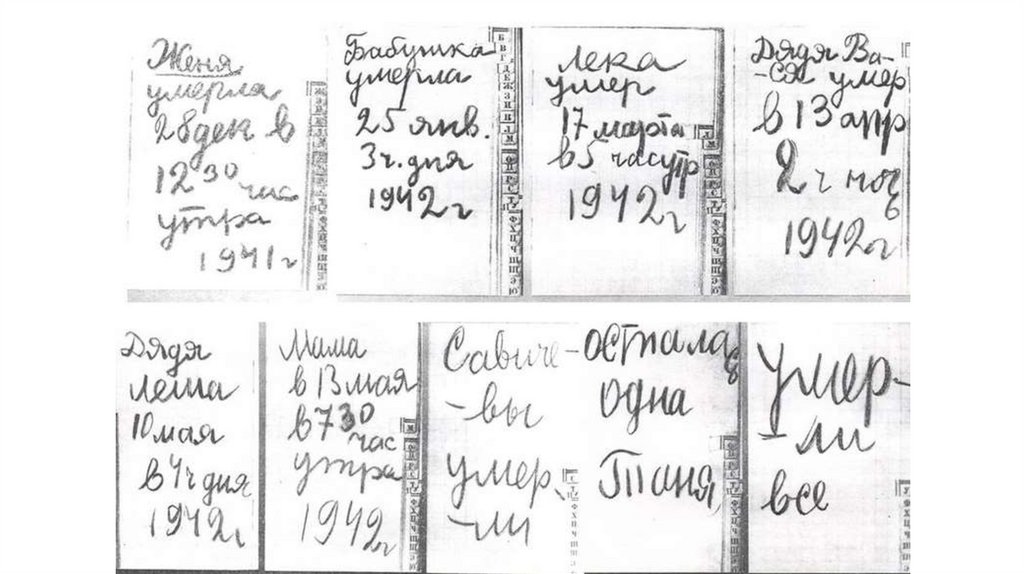 Женя
умерла
28 дек в
12 30 час
утра
1941 г
Бабушка
умерла
25 янв.
3 ч. дня
1942 г
Лека
умер
17 марта
в 5 час утр
1942 г
Дядя Ва-
-ся умер
в 13 апр
2 ч ноч
1942 г
Дядя
Леша
10 мая
в 4 ч дня
1942 г
Мама
в 13 мая
в 7 30 час
утра
1942 г
Савиче-
-вы
умер
-ли
Осталась
одна
Таня
Умер-
-ли
все